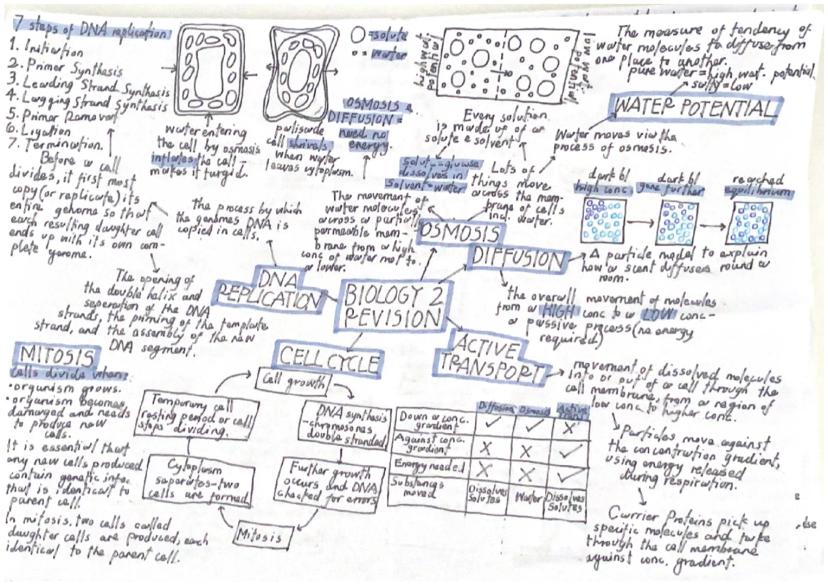 7 steps of DNA replication
1. Initiation
2. Primer Synthesis
3. Leading Strand Synthesis
4. Lagging Strand Synthesis
5. Primer Removal
6. Ligation
7. Termination.
Before a cell
divides, it first most
copy (or replicate) its
entire genome so that
each resulting daughter cell
ends up with its own com-
plete genome.
water entering
the cell by osmosis
inflates the cell -
makes it turgid.
palisade
cell shrivels
when water
leaves cytoplasm.
= solute
= water
OSMOSIS &
DIFFUSION =
need no
energy.
high wat.
potential
low wat.
potential
Every solution
is made up of a
solute & solvent
solut - glucose
dissolves in
solvent = water
Lots of
things move
across the mem-
brane of cells
incl. water.
The measure of tendency of
water molecules to diffuse from
one place to another.
pure water = high wat. potential
salty = low
WATER POTENTIAL
Water moves via the
process of osmosis.
dark bl
high conc.
dark bl
gone further
reached
equilibrium
The process by which
the genomes DNA is
copied in cells.
The movement of
water molecules
across a partially
permeable mem-
brane from a high
conc of water mol. to
a lower.
OSMOSIS
DIFFUSION
A particle model to explain
how a scent diffuses round a
room.
the overall movement of molecules
from a HIGH conc to a LOW conc -
a passive process (no energy
required)
DNA
REPLICATION
BIOLOGY 2
REVISION
The opening of
the double helix and
seperation of the DNA
strands, the priming of the template
strand, and the assembly of the new
DNA segment.
ACTIVE
TRANSPORT
movement of dissolved molecules
into or out of a cell through the
cell membrane, from a region of
low conc. to higher conc.
Particles move against
the concentration gradient,
using energy released
during respiration.
Carrier Proteins pick up
specific molecules and take
through the cell membrane
against conc. gradient.
MITOSIS
Cells divide when:
• organism grows.
• organism becomes
damaged and needs
to produce new
cells.
It is essential that
any new cells produced
contain genetic info.
that is identical to
parent cell.
In mitosis, two cells called
daughter cells are produced, each
identical to the parent cell.
CELL CYCLE
Cell growth
DNA synthesis
- chromosones
double stranded.
Further growth
occurs and DNA
checked for errors
Mitosis
Cytoplasm
separates - two
cells are formed.
Temporary cell
resting period or cell
stops dividing.
Diffusion Osmosis Active
Down a conc. gradient ✓ ✓ X
Against conc. gradient X X ✓
Energy needed X X ✓
Substances moved Dissolved Solutes Water Dissolves Solutes